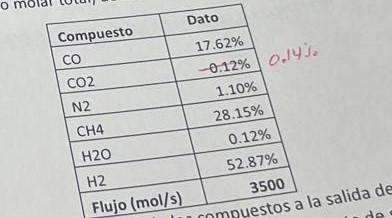 o molar total,
Compuesto Dato
CO 17.62%
CO2 -0.12% 0.14%
N2 1.10%
CH4 28.15%
H2O 0.12%
H2 52.87%
Flujo (mol/s) 3500
compuestos a la salida de